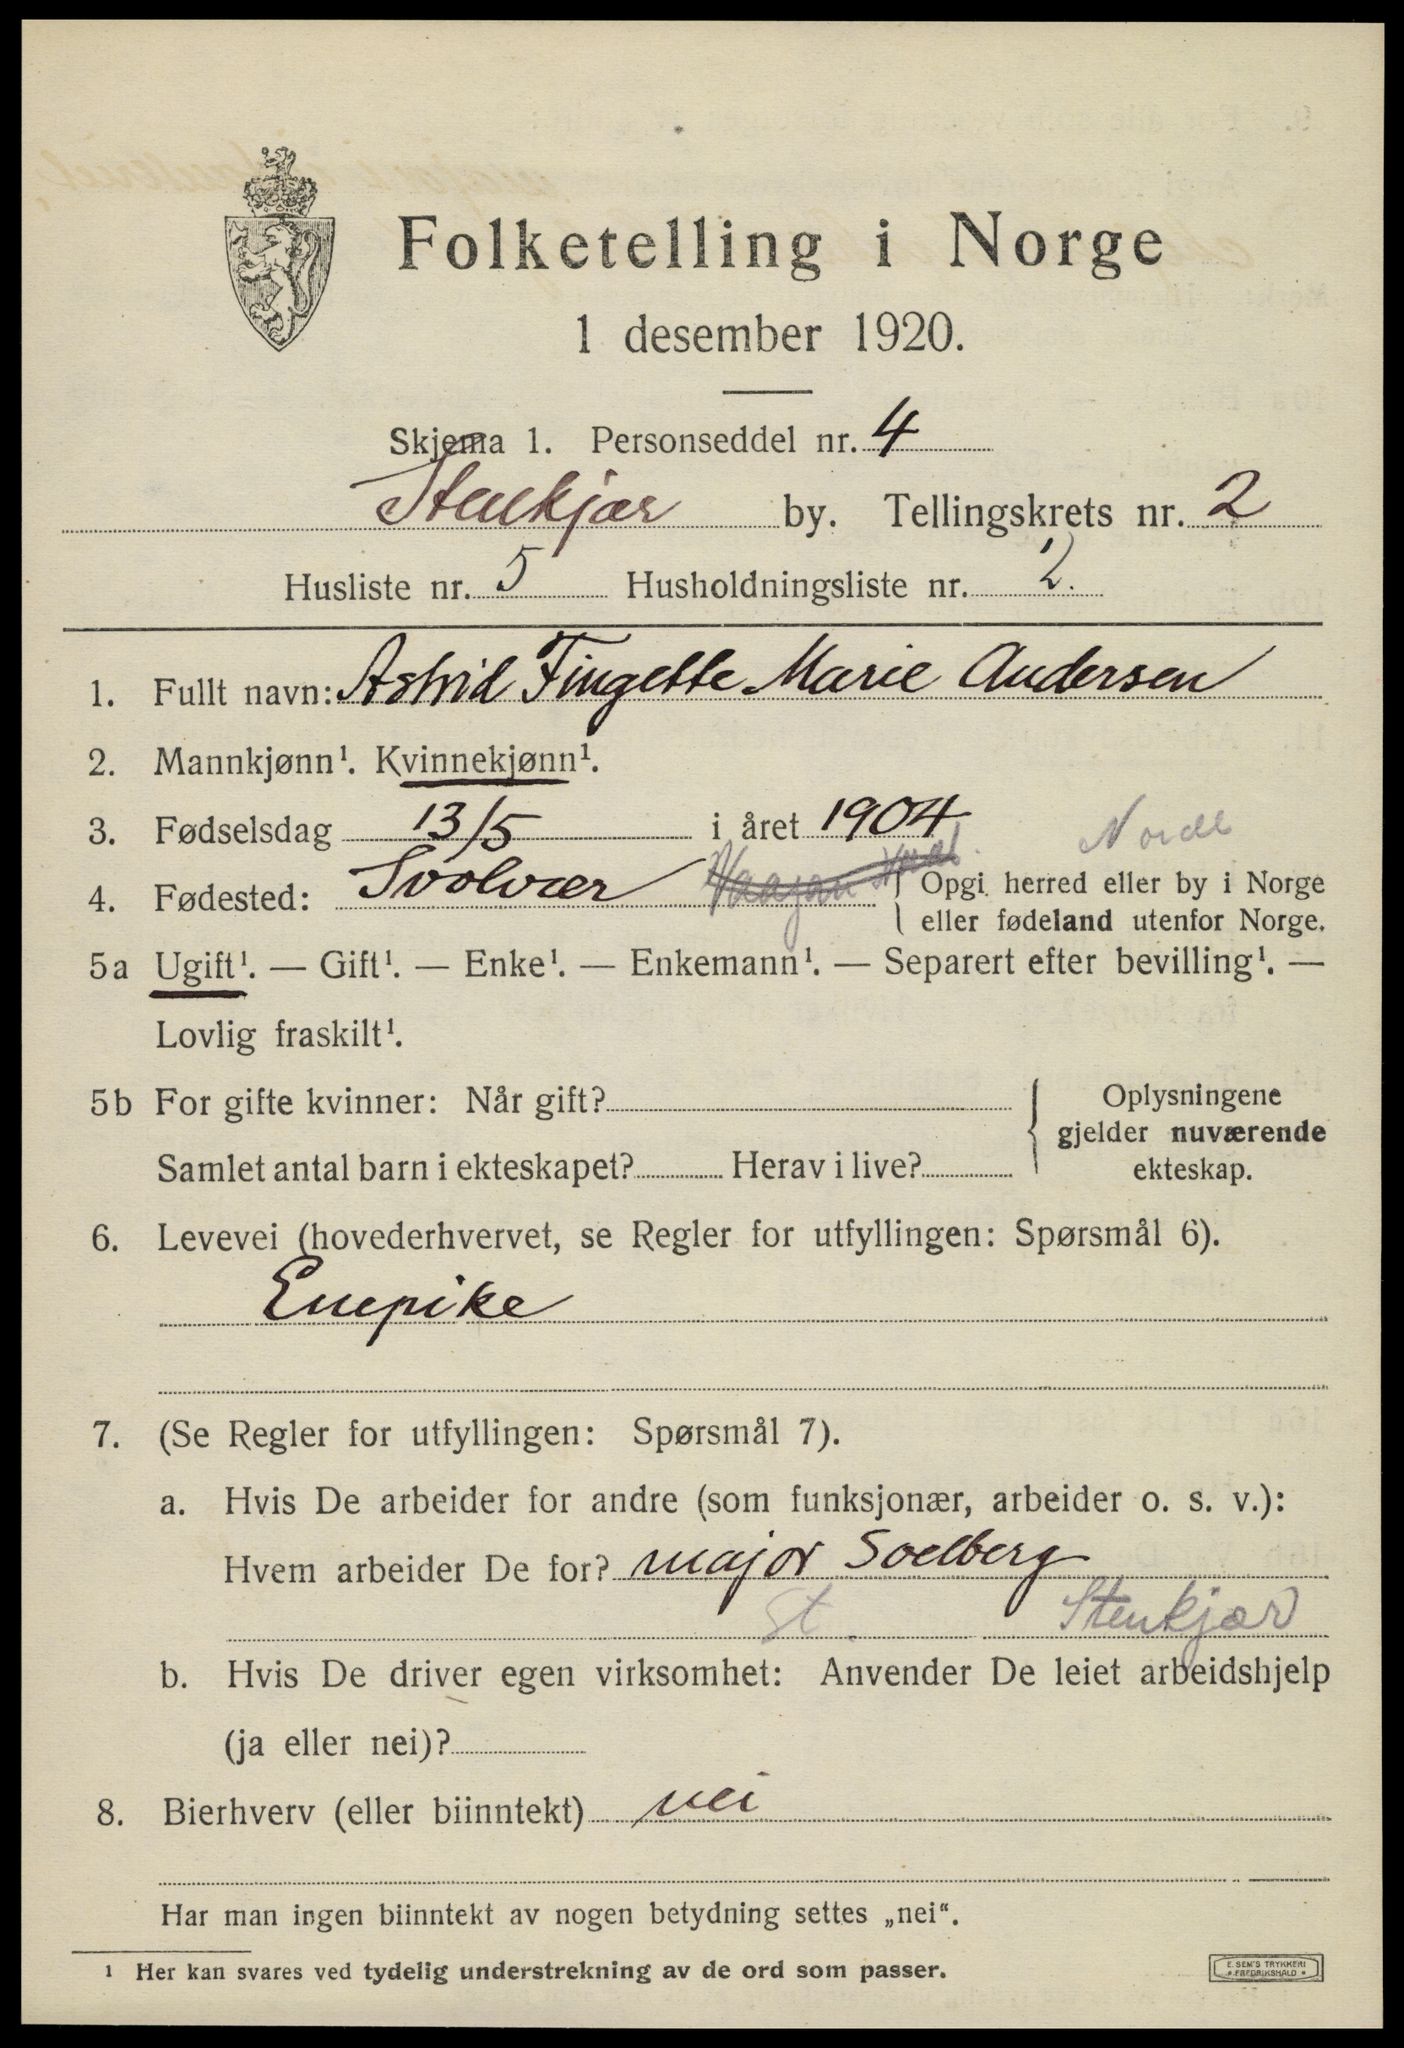 Folketelling i Norge
1 desember 1920.
Skjema 1. Personseddel nr. 4
Stenkjær by. Tellingskrets nr. 2
Husliste nr. 5 Husholdningsliste nr. 2.
1. Fullt navn: Astrid Fingette Marie Andersen
2. Mannkjønn¹. Kvinnekjønn¹.
3. Fødselsdag 13/5 i året 1904
Nordl
4. Fødested: Svolvær Vaagan { Opgi herred eller by i Norge
eller fødeland utenfor Norge.
5a Ugift¹. — Gift¹. — Enke¹. — Enkemann¹. — Separert efter bevilling¹. —
Lovlig fraskilt¹.
5b For gifte kvinner: Når gift?
Samlet antal barn i ekteskapet? Herav i live?
{ Oplysningene
gjelder nuværende
ekteskap.
6. Levevei (hovederhvervet, se Regler for utfyllingen: Spørsmål 6).
Enepike
7. (Se Regler for utfyllingen: Spørsmål 7).
a. Hvis De arbeider for andre (som funksjonær, arbeider o. s. v.):
Hvem arbeider De for? major Soelberg
St. Stenkjær
b. Hvis De driver egen virksomhet: Anvender De leiet arbeidshjelp
(ja eller nei)?
8. Bierhverv (eller biinntekt) nei
Har man ingen biinntekt av nogen betydning settes „nei“.
¹ Her kan svares ved tydelig understrekning av de ord som passer.
E. SEM'S TRYKKERI
* FREDRIKSHALD *